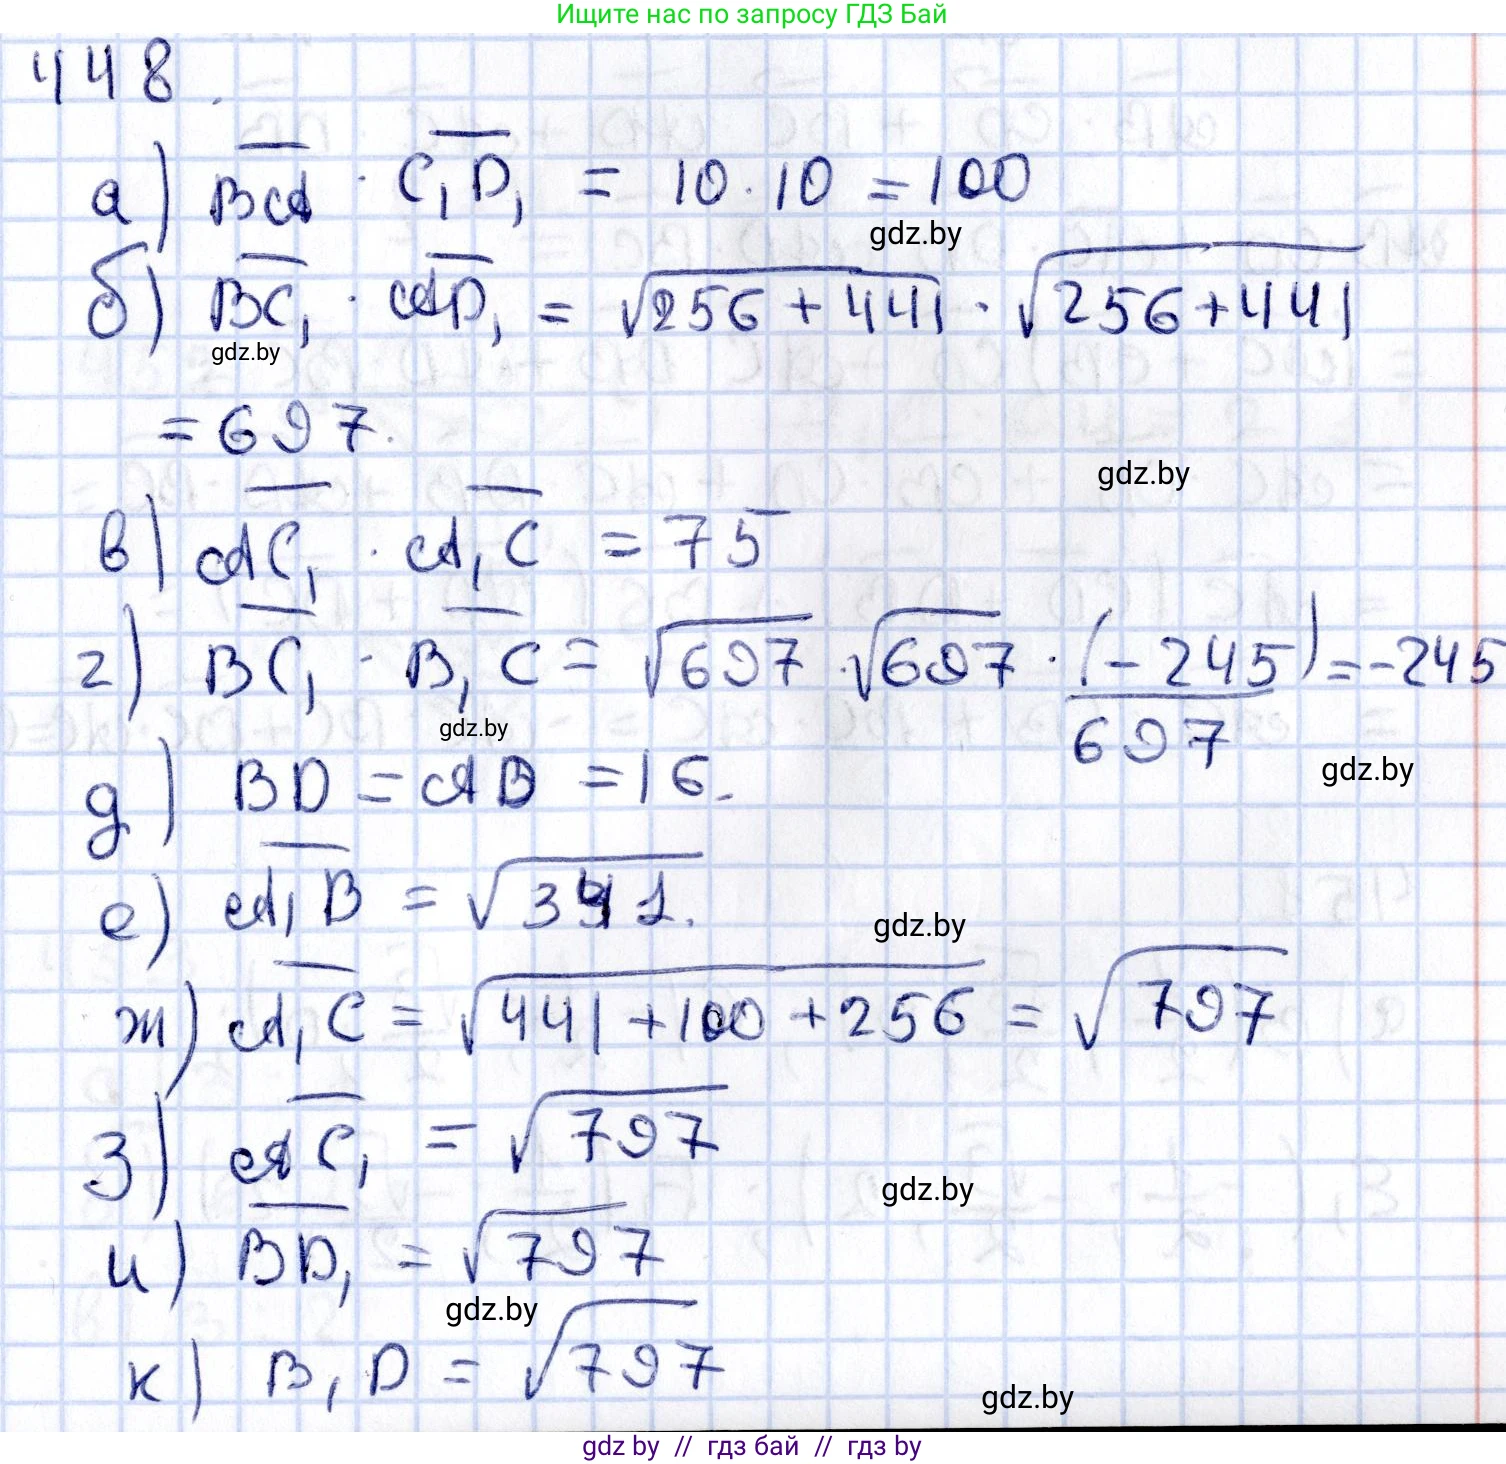 Ищите нас по запросу ГДЗ Бай
448.
а) BA · C₁D₁ = 10 · 10 = 100
gdz.by
б) BC₁ · AD₁ = √256 + 441 · √256 + 441
gdz.by
= 697.
gdz.by
в) AC₁ · A₁C = 75
г) BC₁ · B₁C = √697 · √697 · (-245)/697 = -245
gdz.by
gdz.by
д) BD = AB = 16.
е) A₁B = √341.
gdz.by
ж) A₁C = √441 + 100 + 256 = √797
з) AC₁ = √797
gdz.by
и) BD₁ = √797
gdz.by
к) B₁D = √797
gdz.by
gdz by // гдз бай // гдз by